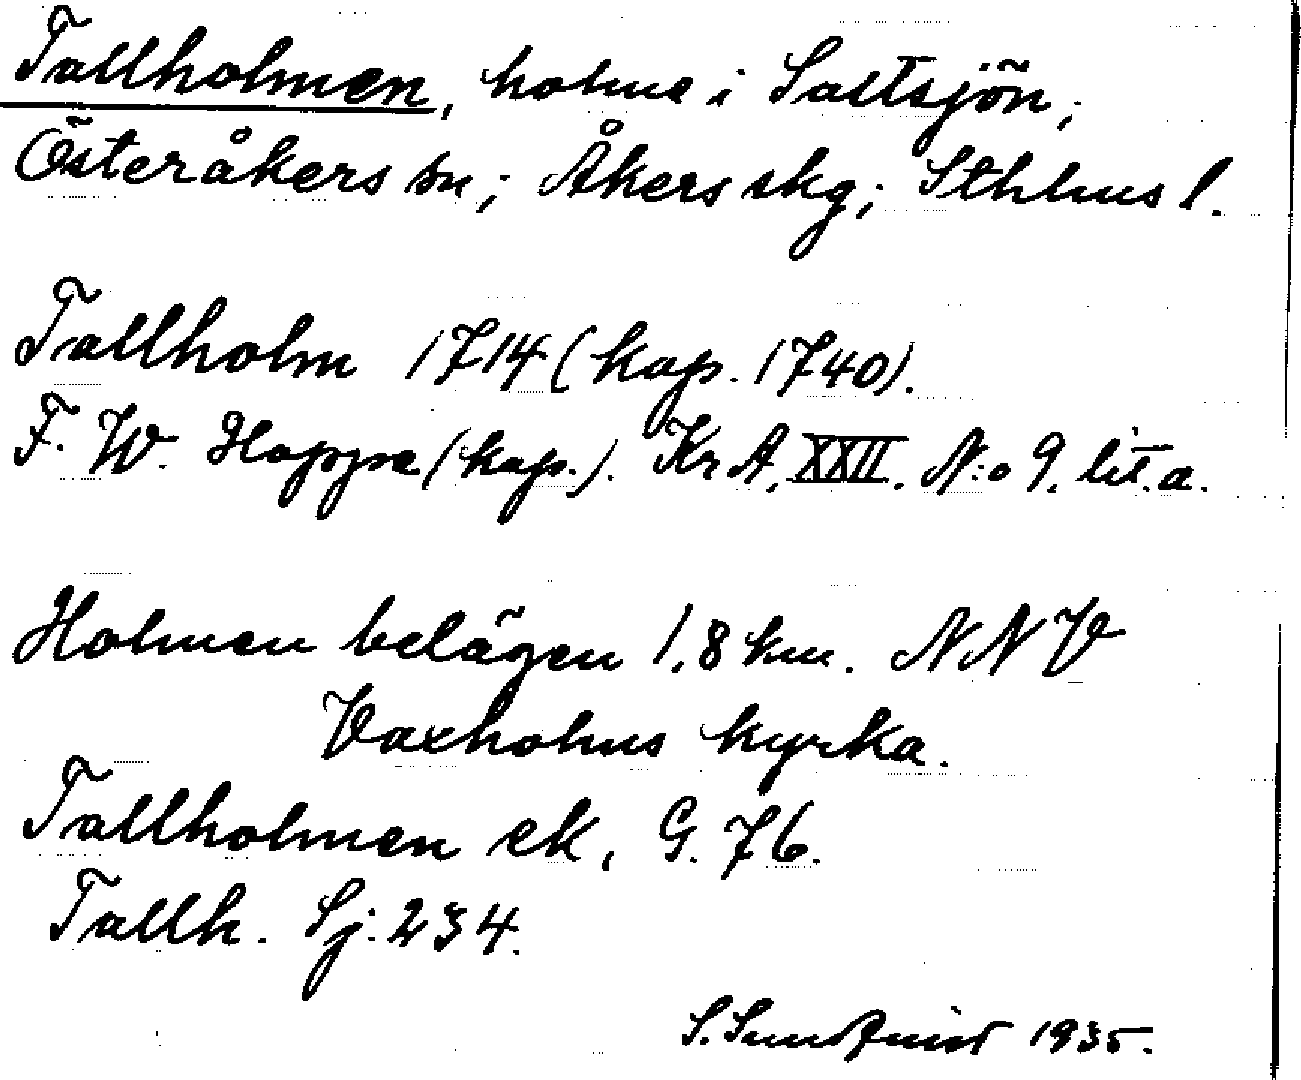 Tallholmen, holme i Saltsjön;
Österåkers sn; Åkers skg; Sthlms l.
Tallholm 1714 (kop. 1740).
F. W. Hoppe (kop.). Kr A. XXII. N:o 9. lit. a.
Holmen belägen 1,8 km. NNV
Vaxholms kyrka.
Tallholmen ek, G. 76.
Tallh. Sj: 234.
S. Sundqvist 1935.